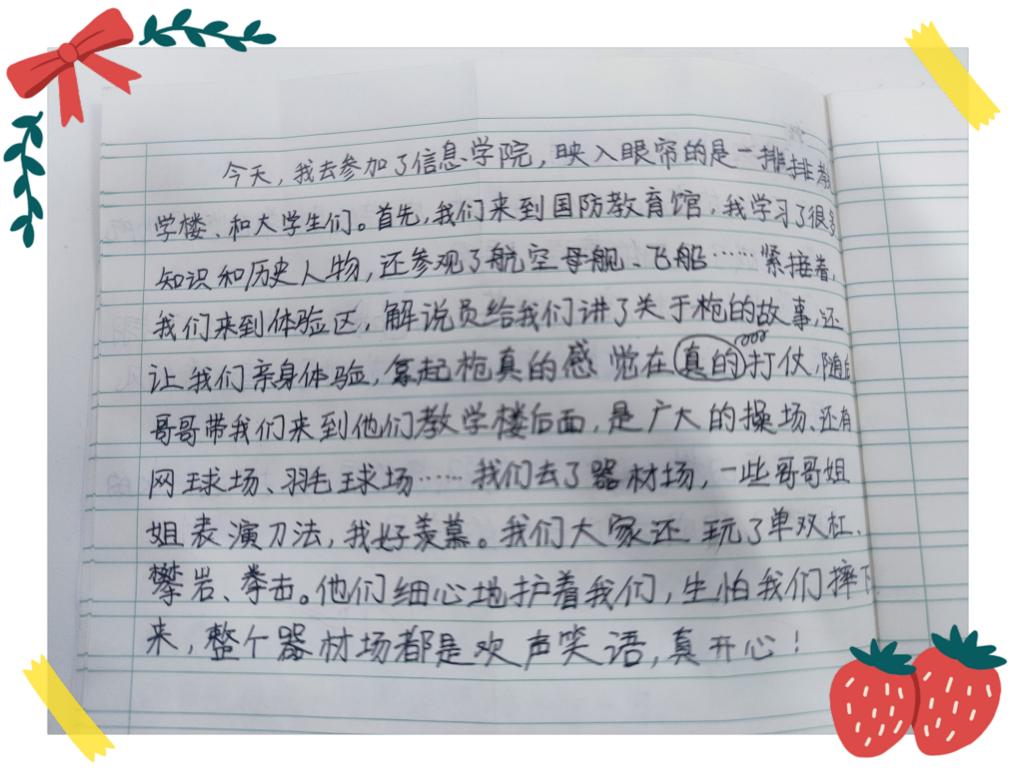 今天，我去参加了信息学院，映入眼帘的是一排排教
学楼、和大学生们。首先，我们来到国防教育馆，我学习了很多
知识和历史人物，还参观了航空母舰、飞船……紧接着，
我们来到体验区，解说员给我们讲了关于枪的故事，还
让我们亲身体验，拿起枪真的感觉在真的打仗，随后
哥哥带我们来到他们教学楼后面，是广大的操场、还有
网球场、羽毛球场……我们去了器材场，一些哥哥姐
姐表演刀法，我好羡慕。我们大家还玩了单双杠、
攀岩、拳击。他们细心地护着我们，生怕我们摔下
来，整个器材场都是欢声笑语，真开心！